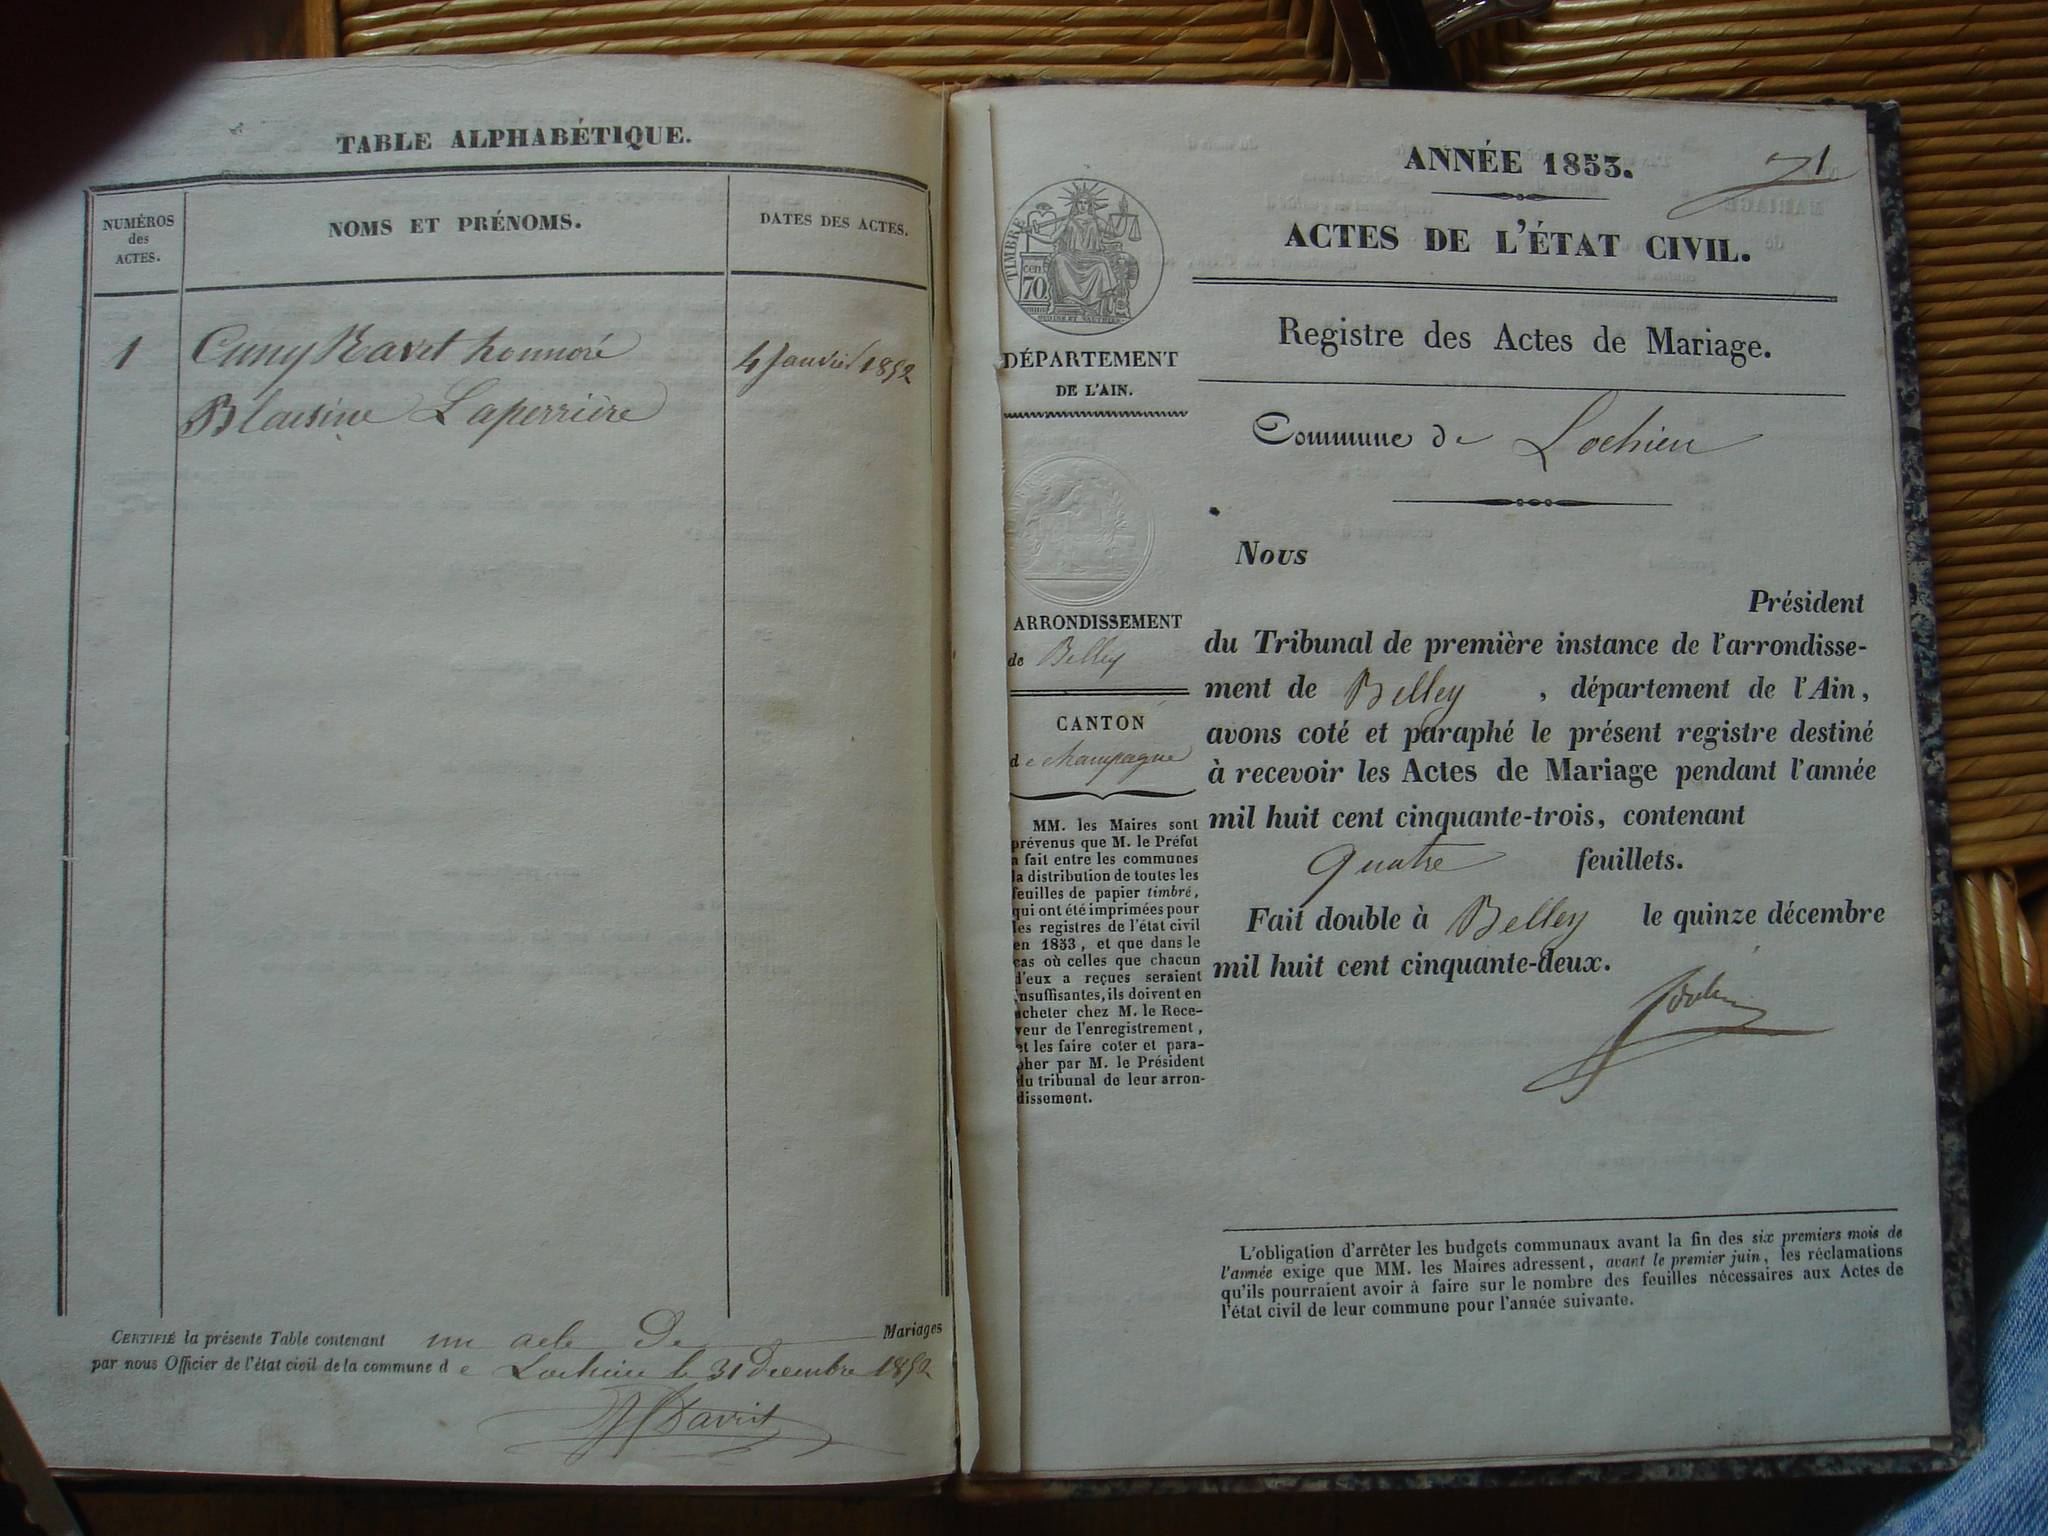 TABLE ALPHABÉTIQUE.
NUMÉROS
des
ACTES.
NOMS ET PRÉNOMS.
DATES DES ACTES.
1 Cuny Ravet honnoré 4 Janvier 1852
Blaisine Laperrière
CERTIFIÉ la présente Table contenant un acte De Mariages
par nous Officier de l'état civil de la commune d e Lochieu le 31 Décembre 1852
ANNÉE 1853.
ACTES DE L'ÉTAT CIVIL.
TIMBRE
cen.
70.
DÉPARTEMENT
DE L'AIN.
ARRONDISSEMENT
de Belley
CANTON
de champagne
MM. les Maires sont
prévenus que M. le Préfet
a fait entre les communes
la distribution de toutes les
feuilles de papier timbré,
qui ont été imprimées pour
les registres de l'état civil
en 1853, et que dans le
cas où celles que chacun
d'eux a reçues seraient
insuffisantes, ils doivent en
acheter chez M. le Rece-
veur de l'enregistrement,
et les faire coter et para-
pher par M. le Président
du tribunal de leur arron-
dissement.
Registre des Actes de Mariage.
Commune de Lochieu
Nous
Président
du Tribunal de première instance de l'arrondisse-
ment de Belley , département de l'Ain,
avons coté et paraphé le présent registre destiné
à recevoir les Actes de Mariage pendant l'année
mil huit cent cinquante-trois, contenant
quatre feuillets.
Fait double à Belley le quinze décembre
mil huit cent cinquante-deux.
L'obligation d'arrêter les budgets communaux avant la fin des six premiers mois de
l'année exige que MM. les Maires adressent, avant le premier juin, les réclamations
qu'ils pourraient avoir à faire sur le nombre des feuilles nécessaires aux Actes de
l'état civil de leur commune pour l'année suivante.